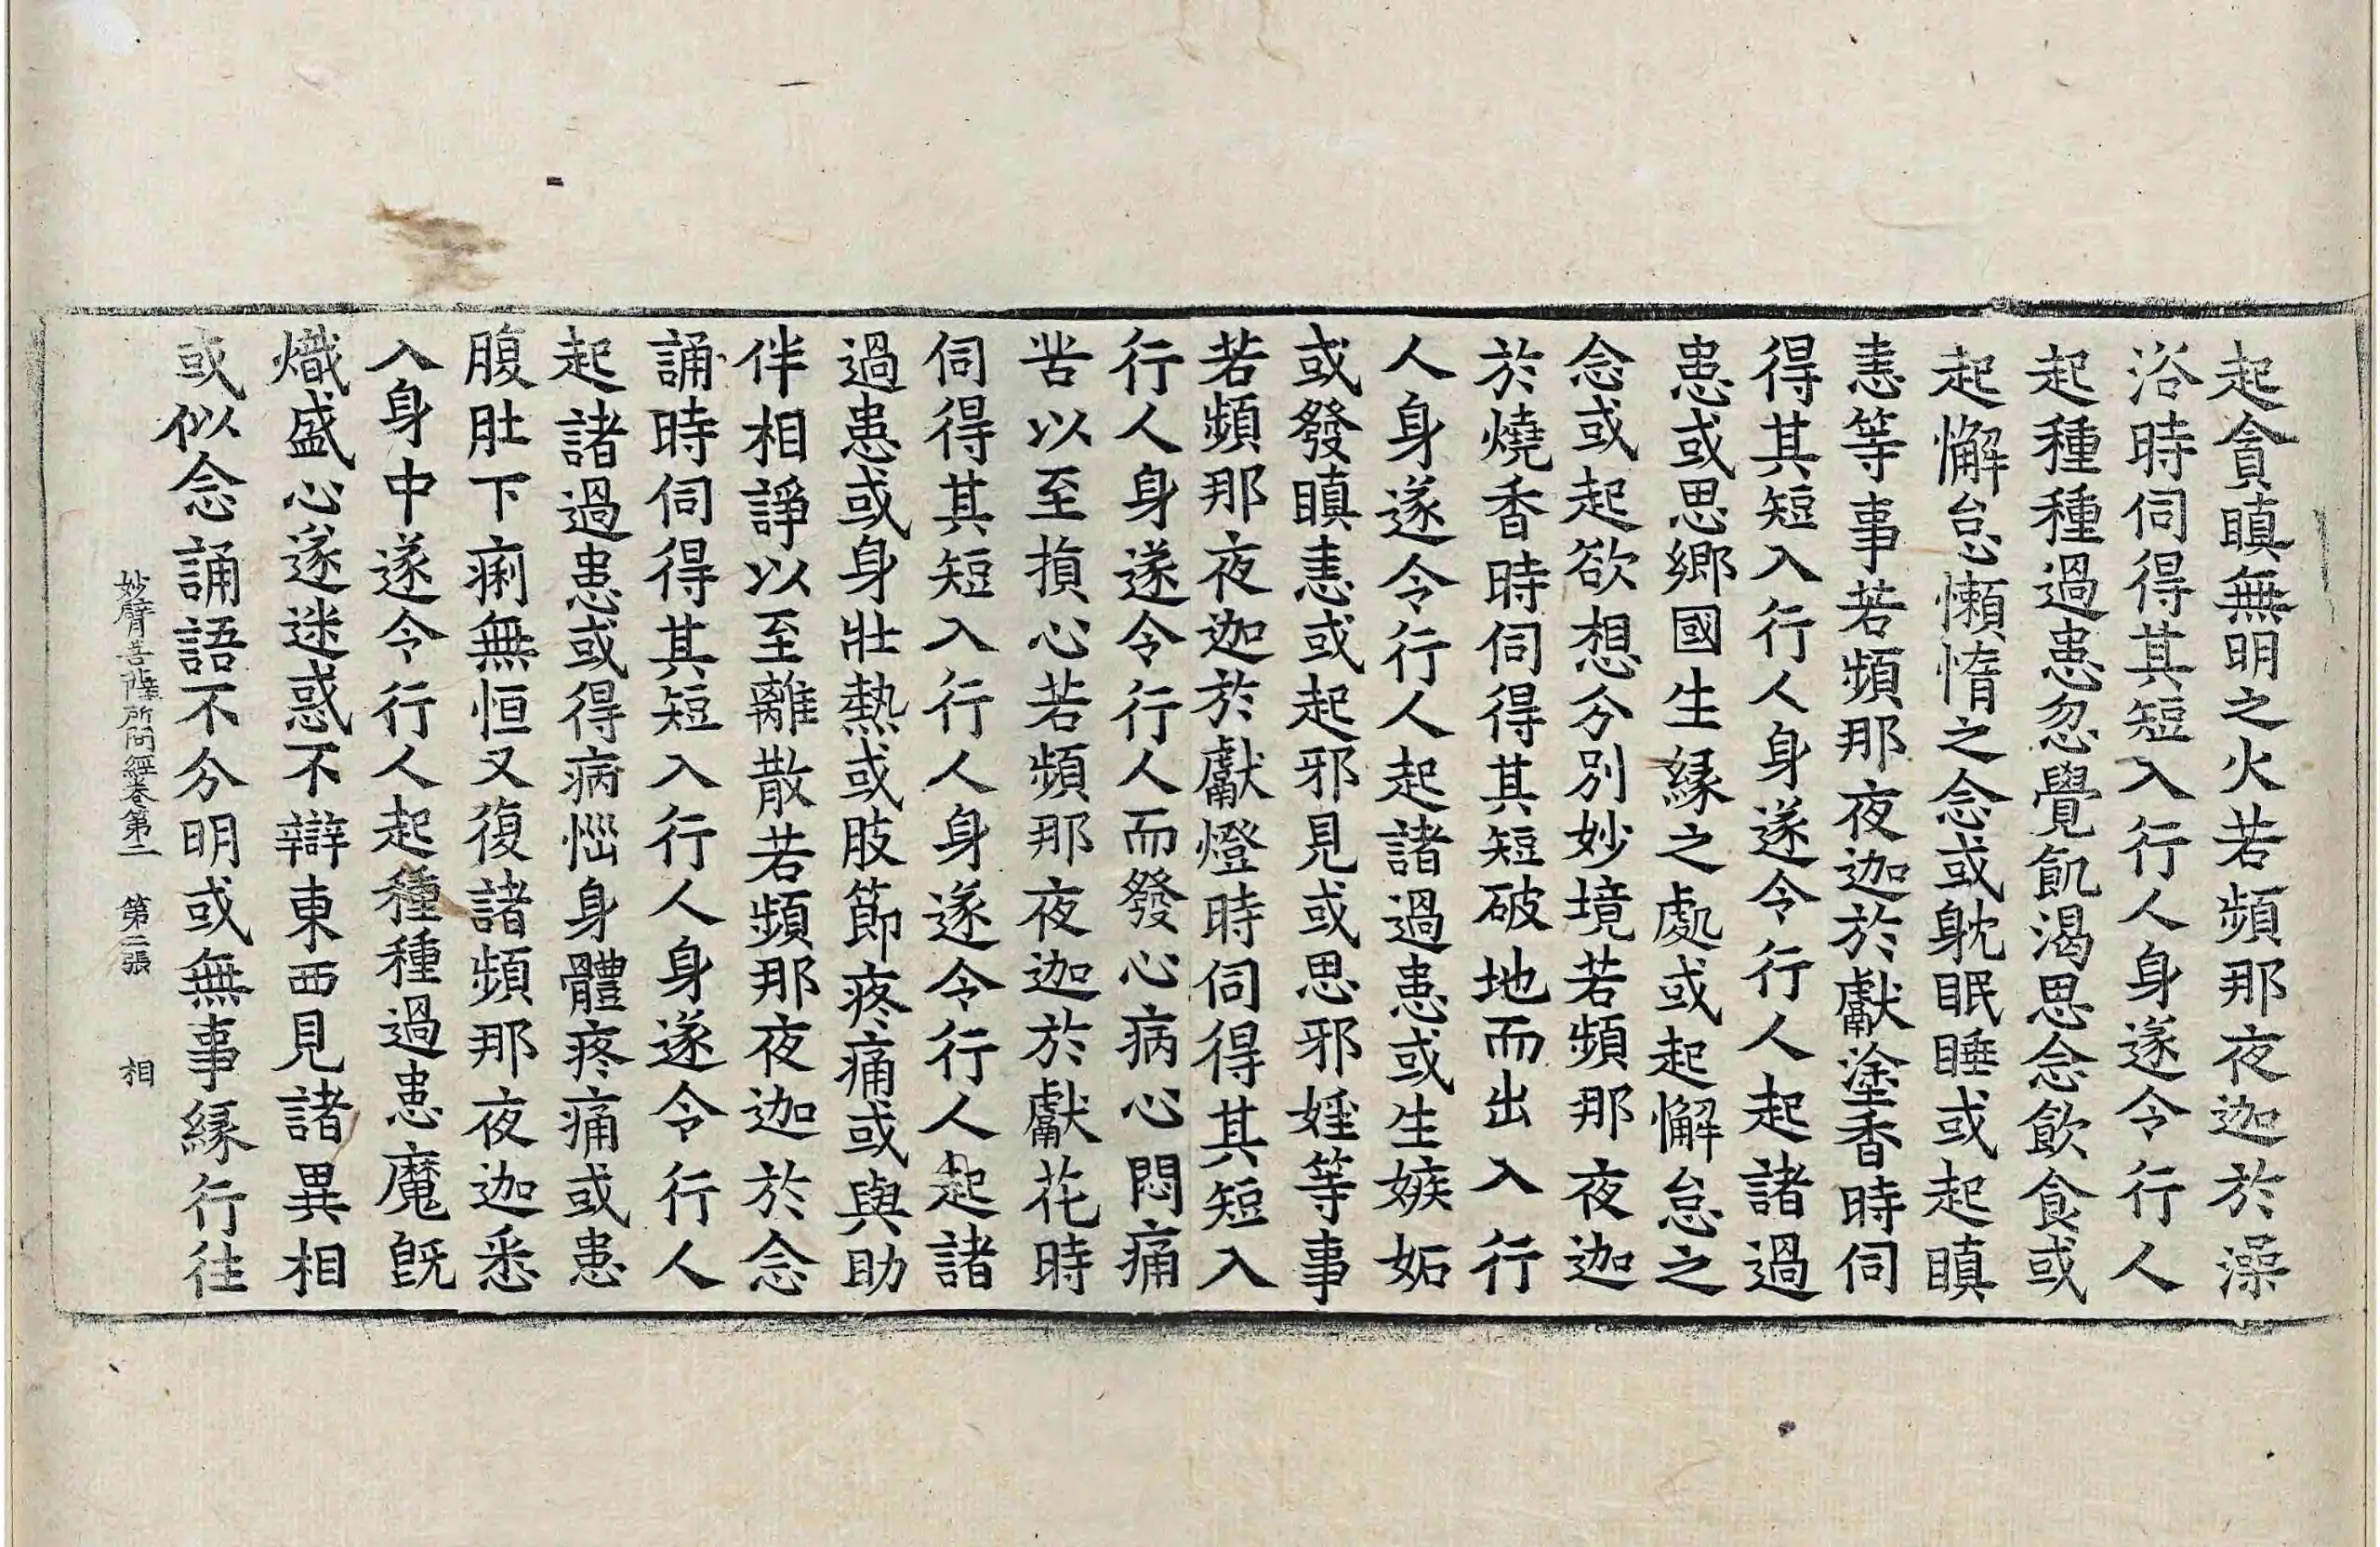 起貪瞋無明之火若頻那夜迦於澡
浴時伺得其短入行人身遂令行人
起種種過患忽覺飢渴思念飲食或
起懈怠懶惰之念或躭眠睡或起瞋
恚等事若頻那夜迦於獻塗香時伺
得其短入行人身遂令行人起諸過
患或思鄉國生緣之處或起懈怠之
念或起欲想分別妙境若頻那夜迦
於燒香時伺得其短破地而出入行
人身遂令行人起諸過患或生嫉妬
或發瞋恚或起邪見或思邪婬等事
若頻那夜迦於獻燈時伺得其短入
行人身遂令行人而發心病心悶痛
苦以至損心若頻那夜迦於獻花時
伺得其短入行人身遂令行人起諸
過患或身壯熱或肢節疼痛或與助
伴相諍以至離散若頻那夜迦於念
誦時伺得其短入行人身遂令行人
起諸過患或得病惱身體疼痛或患
腹肚下痢無恒又復諸頻那夜迦悉
入身中遂令行人起種種過患魔旣
熾盛心遂迷惑不辯東西見諸異相
或似念誦語不分明或無事緣行往
妙臂菩薩所問經卷第二 第三張 相